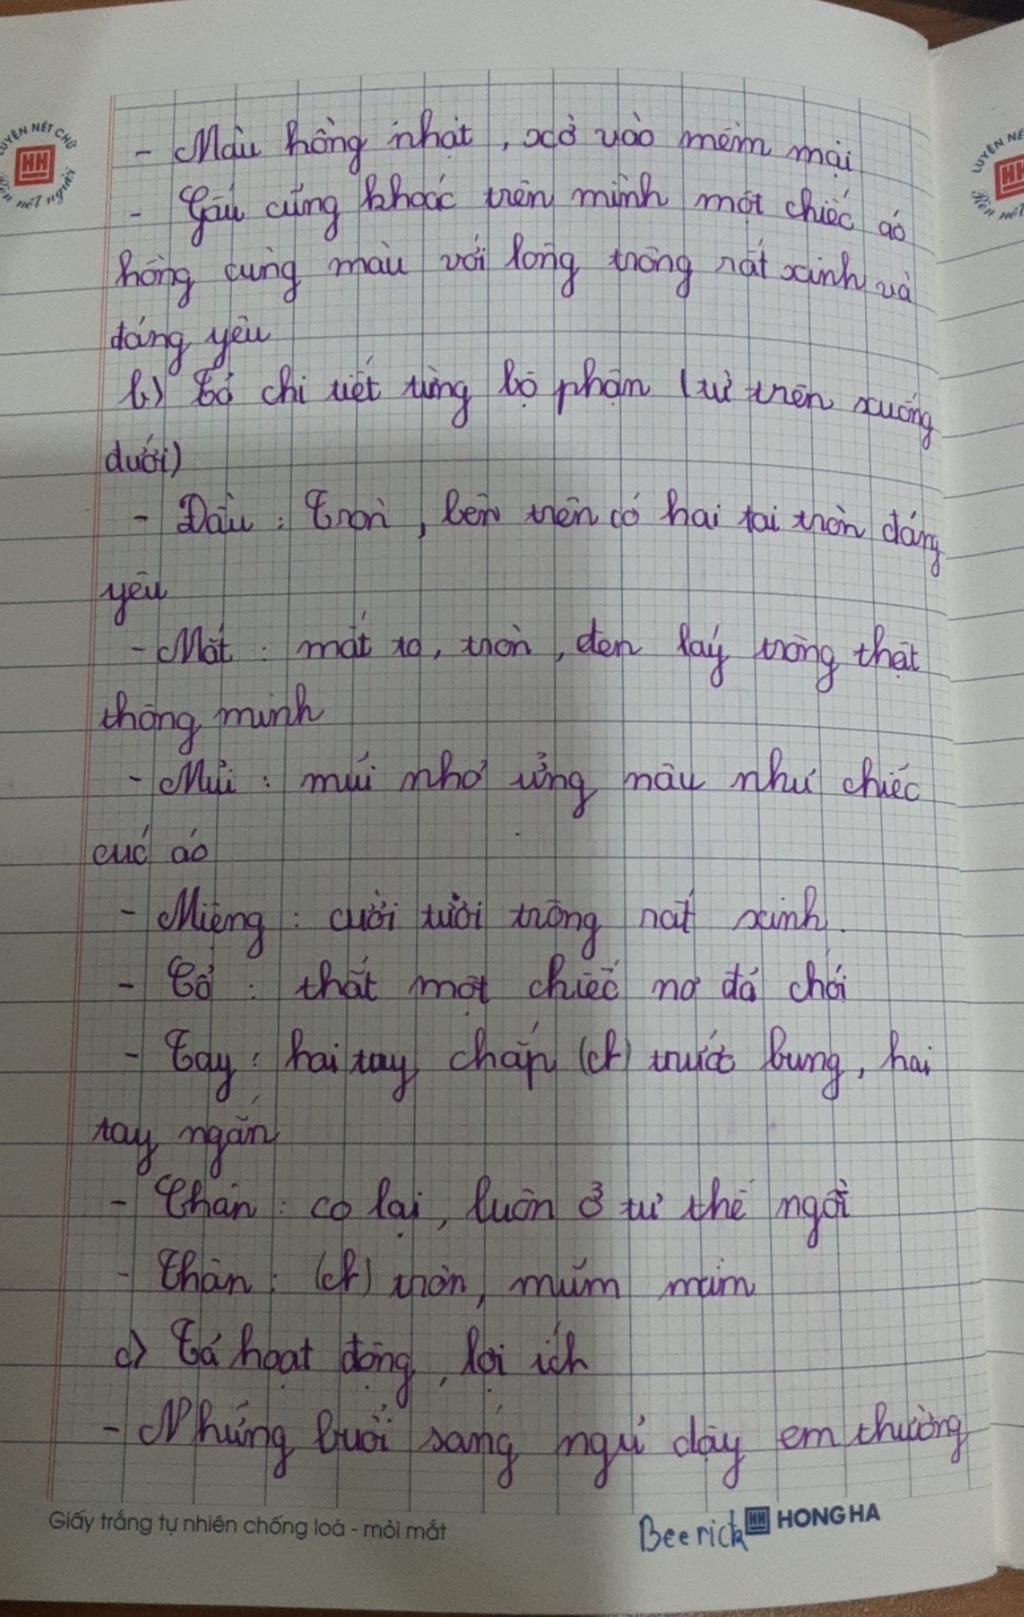 LUYỆN NÉT CHỮ
HH
Rèn nết người
LUYỆN NÉ
HH
Rèn nết
- Màu hồng nhạt, xờ vào mềm mại
- Gấu cũng khoác trên mình một chiếc áo
hồng cùng màu với lông trông rất xinh và
đáng yêu
b) Tả chi tiết từng bộ phận (từ trên xuống
dưới)
- Đầu : Tròn, bên trên có hai tai tròn đáng
yêu
- Mắt : mắt to, tròn, đen láy trông thật
thông minh
- Mũi : mũi nhỏ ửng nâu như chiếc
cúc áo
- Miệng : cười tươi trông rất xinh.
- Cổ : thắt một chiếc nơ đỏ chói
- Tay : hai tay chắp (ch) trước bụng, hai
tay ngắn
- Chân : co lại, luôn ở tư thế ngồi
- Thân : (ch) tròn, mũm mĩm
c) Tả hoạt động, lợi ích
- Những buổi sáng ngủ dậy em thường
Giấy trắng tự nhiên chống loá - mỏi mắt
Beerick HH HONG HA